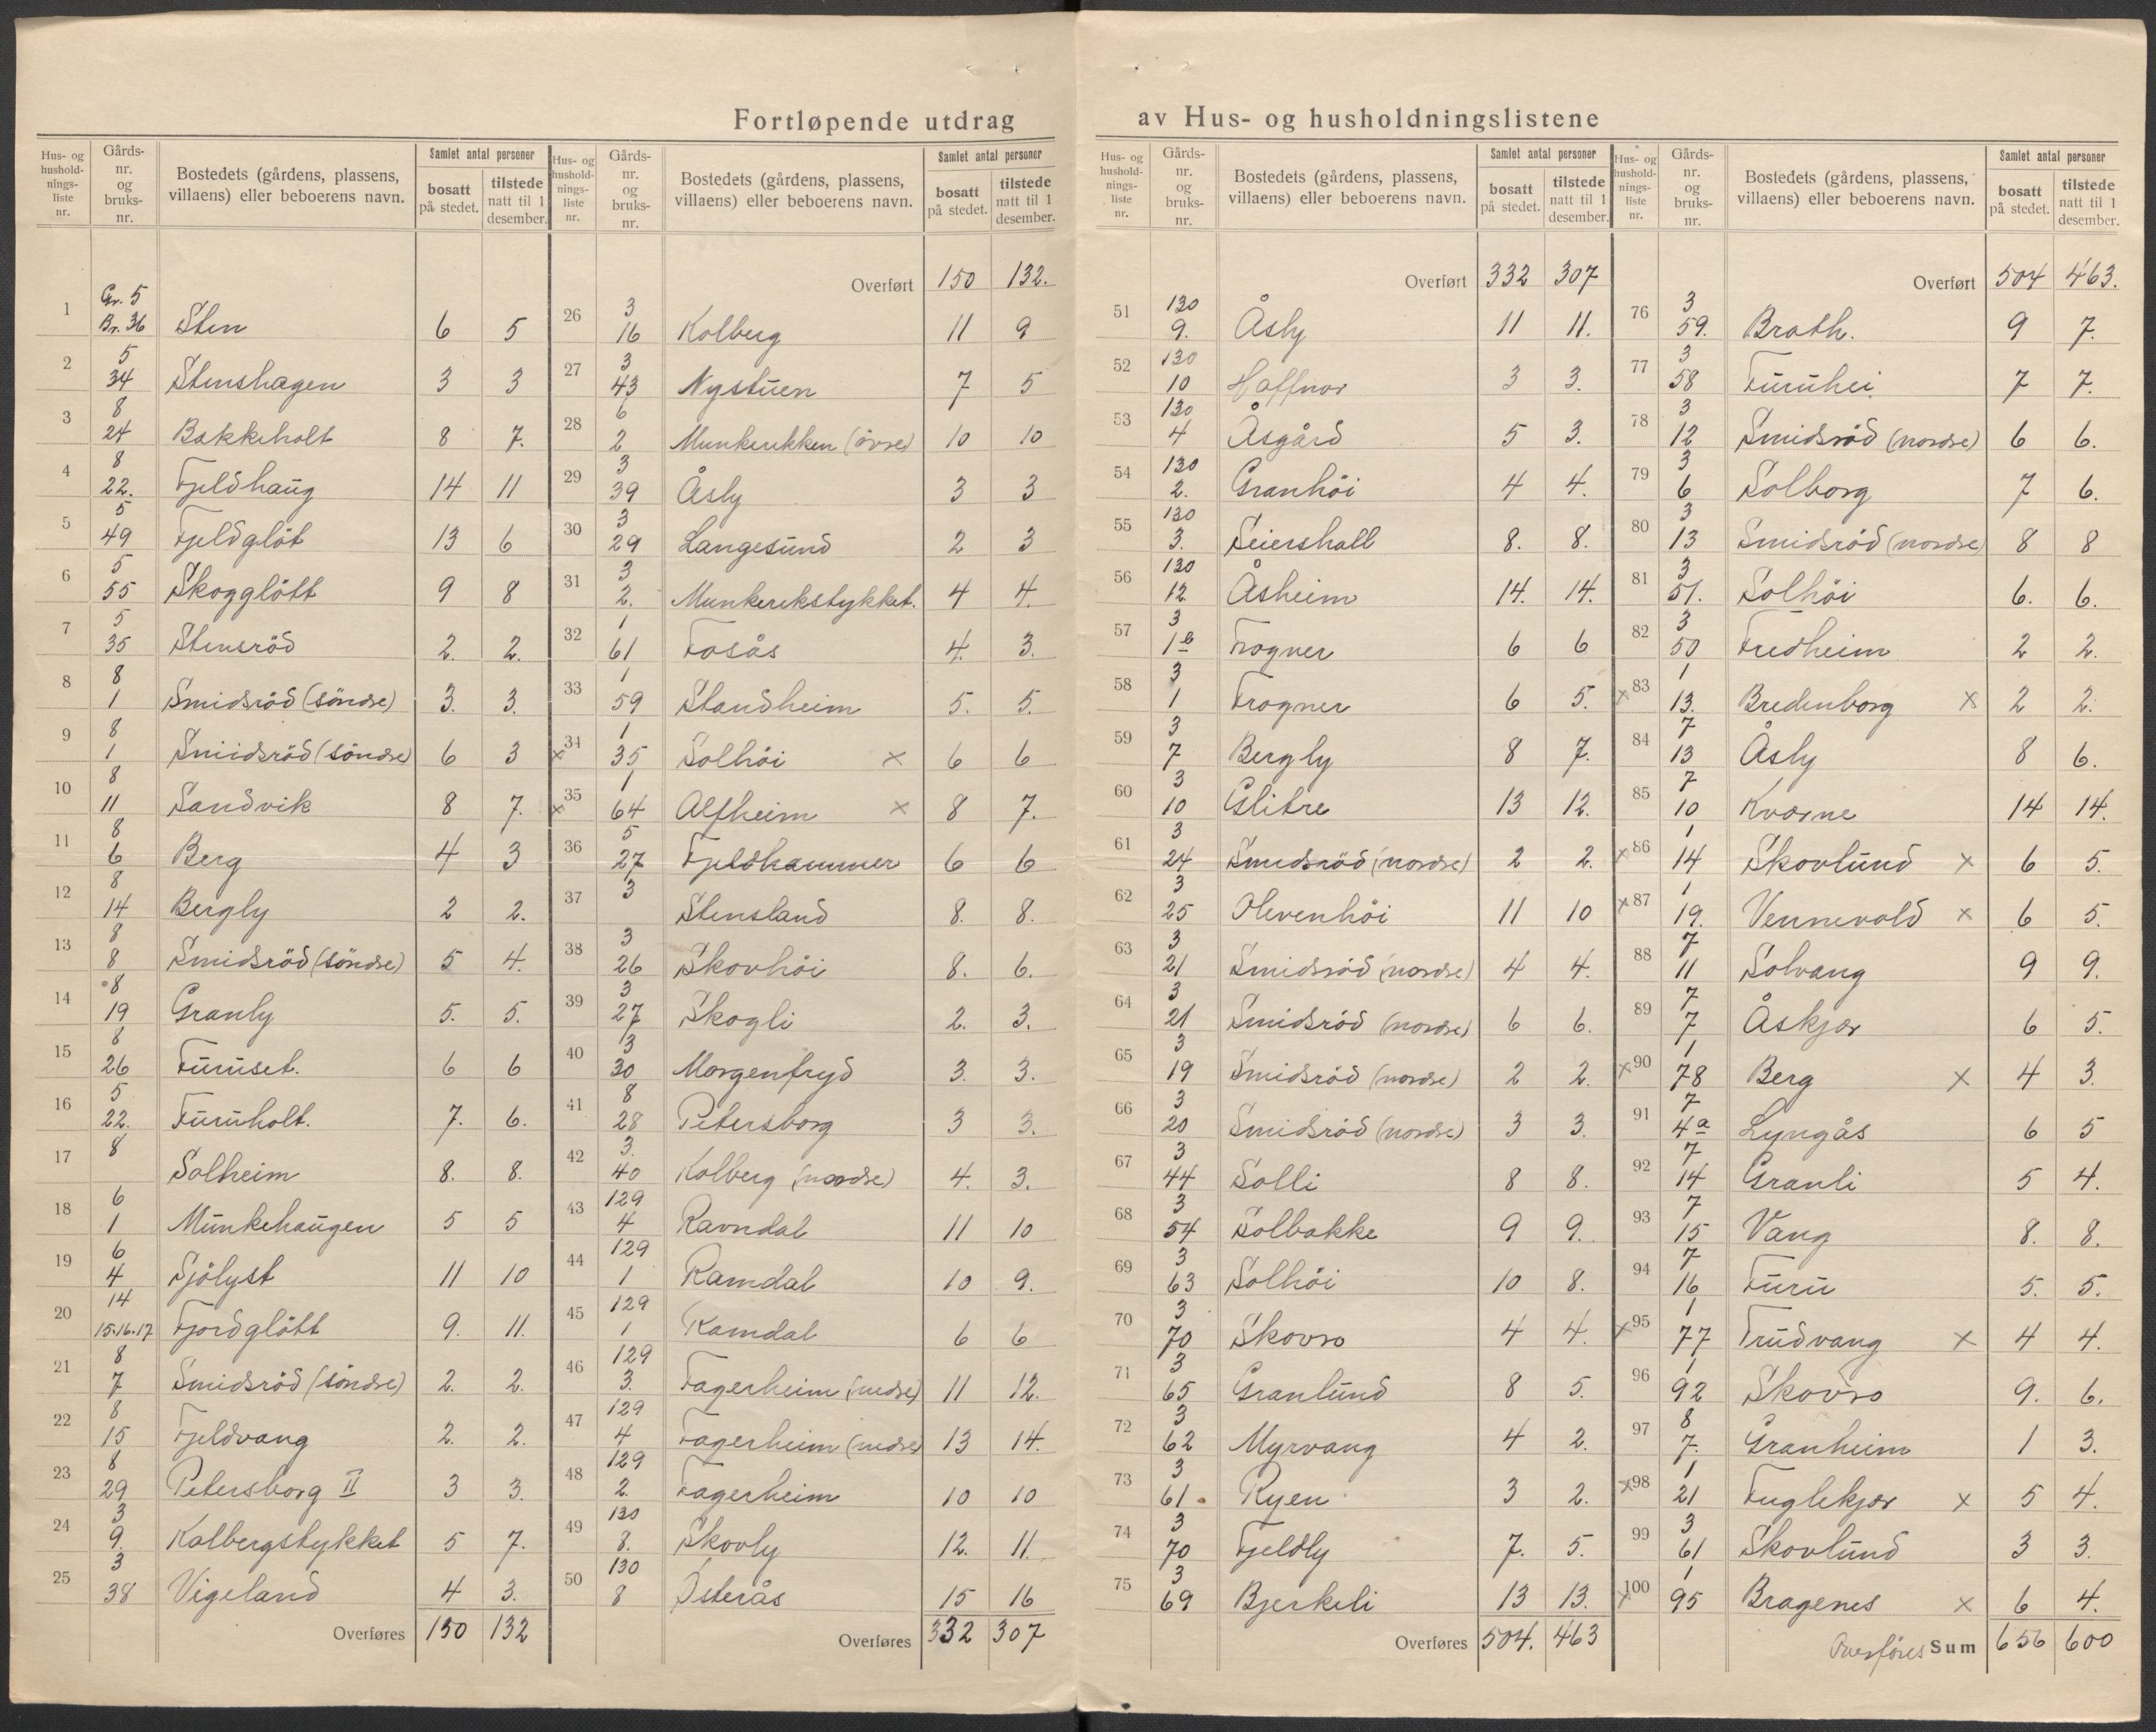 Fortløpende utdrag av Hus- og husholdningslistene
Hus- og husholdnings-liste nr. | Gårds-nr. og bruks-nr. | Bostedets (gårdens, plassens, villaens) eller beboerens navn. | Samlet antal personer bosatt på stedet. | tilstede natt til 1 desember.
1 | Gr. 5 Br. 36 | Sten | 6 | 5
2 | 5 34 | Stenshagen | 3 | 3
3 | 8 24 | Bakkeholt | 8 | 7.
4 | 8 22. | Fjeldhaug | 14 | 11
5 | 5 49 | Fjeldgløt | 13 | 6
6 | 5 55 | Skogglött | 9 | 8
7 | 5 35 | Stensröd | 2. | 2.
8 | 8 1 | Smidsröd (söndre) | 3. | 3.
9 | 8 1 | Smidsröd (söndre) | 6 | 3
10 | 8 11 | Sandvik | 8 | 7.
11 | 8 6 | Berg | 4 | 3
12 | 8 14 | Bergly | 2 | 2.
13 | 8 8 | Smidsröd (söndre) | 5 | 4.
14 | 8 19 | Granly | 5. | 5.
15 | 8 26 | Furuset. | 6 | 6
16 | 5 22. | Furuholt. | 7. | 6.
17 | 8 | Solheim | 8. | 8.
18 | 6 1 | Munkehaugen | 5 | 5
19 | 6 4 | Sjölyst | 11 | 10
20 | 14 15.16.17 | Fjordglött | 9. | 11.
21 | 8 7 | Smidsröd (söndre) | 2. | 2.
22 | 8 15 | Fjeldvang | 2. | 2.
23 | 8 29 | Petersborg II | 3 | 3.
24 | 3 9. | Kolbergstykket | 5 | 7.
25 | 3 38 | Vigeland | 4 | 3.
Overføres | 150 | 132
Hus- og husholdnings-liste nr. | Gårds-nr. og bruks-nr. | Bostedets (gårdens, plassens, villaens) eller beboerens navn. | Samlet antal personer bosatt på stedet. | tilstede natt til 1 desember.
Overført | 150 | 132.
26 | 3 16 | Kolberg | 11 | 9
27 | 3 43 | Nystuen | 7 | 5
28 | 6 2 | Munkerekken (övre) | 10 | 10
29 | 3 39 | Åsly | 3 | 3
30 | 3 29 | Langesund | 2 | 3
31 | 3 2. | Munkerekstykket. | 4 | 4.
32 | 1 61 | Fosås | 4. | 3.
33 | 1 59 | Standheim | 5. | 5.
x 34 | 1 35 | Solhöi x | 6 | 6
x 35 | 1 64 | Alfheim x | 8 | 7.
36 | 5 27 | Fjeldhammer | 6 | 6
37 | 3 | Stensland | 8. | 8.
38 | 3 26 | Skovhöi | 8. | 6.
39 | 3 27 | Skogli | 2. | 3.
40 | 3 30 | Morgenfryd | 3. | 3.
41 | 8 28 | Petersborg | 3 | 3.
42 | 3. 40 | Kolberg (nordre) | 4. | 3.
43 | 129 4 | Ravndal | 11 | 10
44 | 129 1 | Ramdal | 10 | 9.
45 | 129 1 | Ramdal | 6 | 6
46 | 129 3. | Fagerheim (nedre) | 11 | 12.
47 | 129 4 | Fagerheim (nedre) | 13 | 14.
48 | 129 2. | Fagerheim | 10 | 10
49 | 130 8. | Skovly | 12. | 11.
50 | 130 8 | Østerås | 15 | 16
Overføres | 332 | 307
Hus- og husholdnings-liste nr. | Gårds-nr. og bruks-nr. | Bostedets (gårdens, plassens, villaens) eller beboerens navn. | Samlet antal personer bosatt på stedet. | tilstede natt til 1 desember.
Overført | 332 | 307
51 | 130 9. | Åsly | 11 | 11.
52 | 130 10 | Haffnor | 3 | 3.
53 | 130 4 | Åsgård | 5 | 3.
54 | 130 2. | Granhöi | 4 | 4.
55 | 130 3. | Seiershall | 8. | 8.
56 | 130 12. | Åsheim | 14. | 14.
57 | 3 1b | Frogner | 6 | 6
58 | 3 1 | Frogner | 6 | 5.
59 | 3 7 | Bergly | 8 | 7.
60 | 3 10 | Glitre | 13 | 12.
61 | 3 24 | Smidsröd (nordre) | 2 | 2.
62 | 3 25 | Olevenhöi | 11 | 10
63 | 3 21 | Smidsröd (nordre) | 4 | 4.
64 | 3 21 | Smidsröd (nordre) | 6 | 6.
65 | 3 19 | Smidsröd (nordre) | 2 | 2.
66 | 3 20 | Smidsröd (nordre) | 3 | 3.
67 | 3 44 | Solli | 8 | 8.
68 | 3 54 | Solbakke | 9 | 9.
69 | 3 63 | Solhöi | 10 | 8.
70 | 3 70 | Skovro | 4 | 4.
71 | 3 65 | Granlund | 8 | 5.
72 | 3 62 | Myrvang | 4 | 2.
73 | 3 61 | Ryen | 3 | 2.
74 | 3 70 | Fjeldly | 7. | 5.
75 | 3 69 | Bjerkeli | 13 | 13.
Overføres | 504. | 463
Hus- og husholdnings-liste nr. | Gårds-nr. og bruks-nr. | Bostedets (gårdens, plassens, villaens) eller beboerens navn. | Samlet antal personer bosatt på stedet. | tilstede natt til 1 desember.
Overført | 504 | 463.
76 | 3 59. | Brath. | 9 | 7.
77 | 3 58 | Furuhei | 7 | 7.
78 | 3 12 | Smidsröd (nordre) | 6 | 6.
79 | 3 6 | Solborg | 7 | 6.
80 | 3 13 | Smidsröd (nordre) | 8 | 8
81 | 3 51. | Solhöi | 6. | 6.
82 | 3 50 | Fredheim | 2 | 2.
x 83 | 1 13. | Bredenborg x | 2 | 2.
84 | 7 13 | Åsly | 8 | 6.
85 | 7 10 | Kværne | 14 | 14.
x 86 | 1 14 | Skovlund x | 6 | 5.
x 87 | 1 19. | Vennevold x | 6 | 5.
88 | 7 11 | Solvang | 9 | 9.
89 | 7 7 | Åskjær | 6 | 5.
x 90 | 1 78 | Berg x | 4 | 3.
91 | 7 4a | Lyngås | 6 | 5
92 | 7 14 | Granli | 5 | 4.
93 | 7 15 | Vang | 8. | 8.
94 | 7 16 | Furu | 5. | 5.
x 95 | 1 77 | Trudvang x | 4 | 4.
96 | 1 92 | Skovro | 9. | 6.
97 | 8 7. | Granheim | 1 | 3.
x 98 | 1 21 | Fuglekjær x | 5 | 4.
99 | 3 61 | Skovlund | 3 | 3.
x 100 | 1 95 | Bragenes x | 6 | 4.
Overföres Sum | 656 | 600